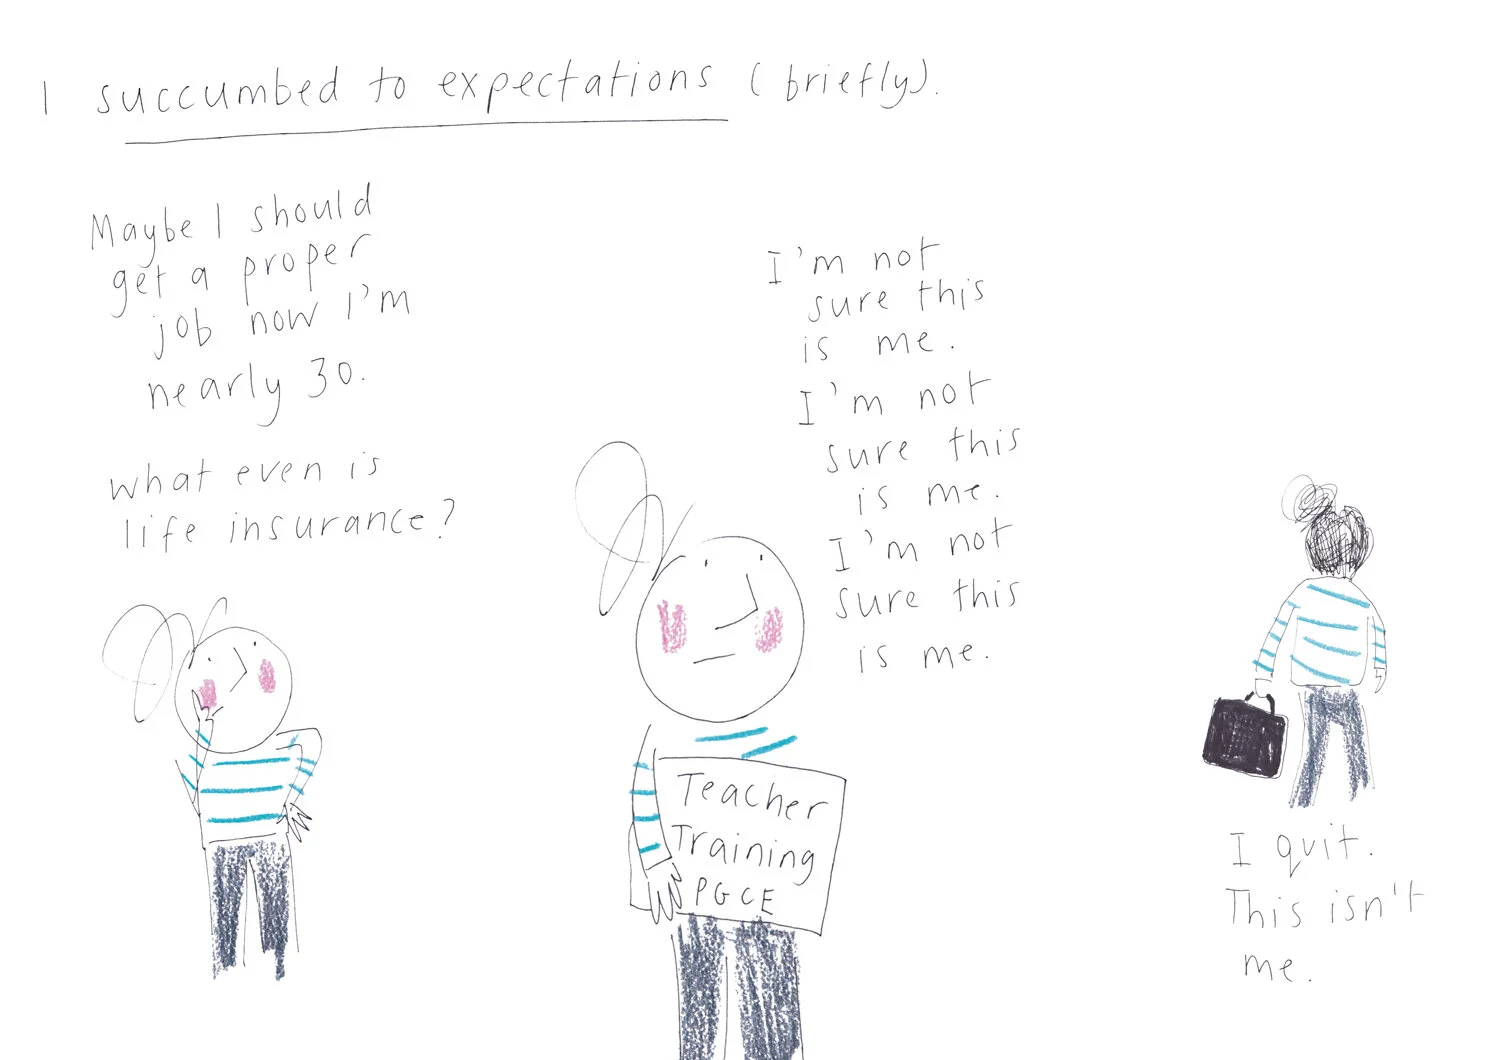 I succumbed to expectations (briefly).
Maybe I should
get a proper
job now I'm
nearly 30.
what even is
life insurance?
I'm not
sure this
is me.
I'm not
sure this
is me.
I'm not
sure this
is me.
Teacher
Training
PGCE
I quit.
This isn't
me.